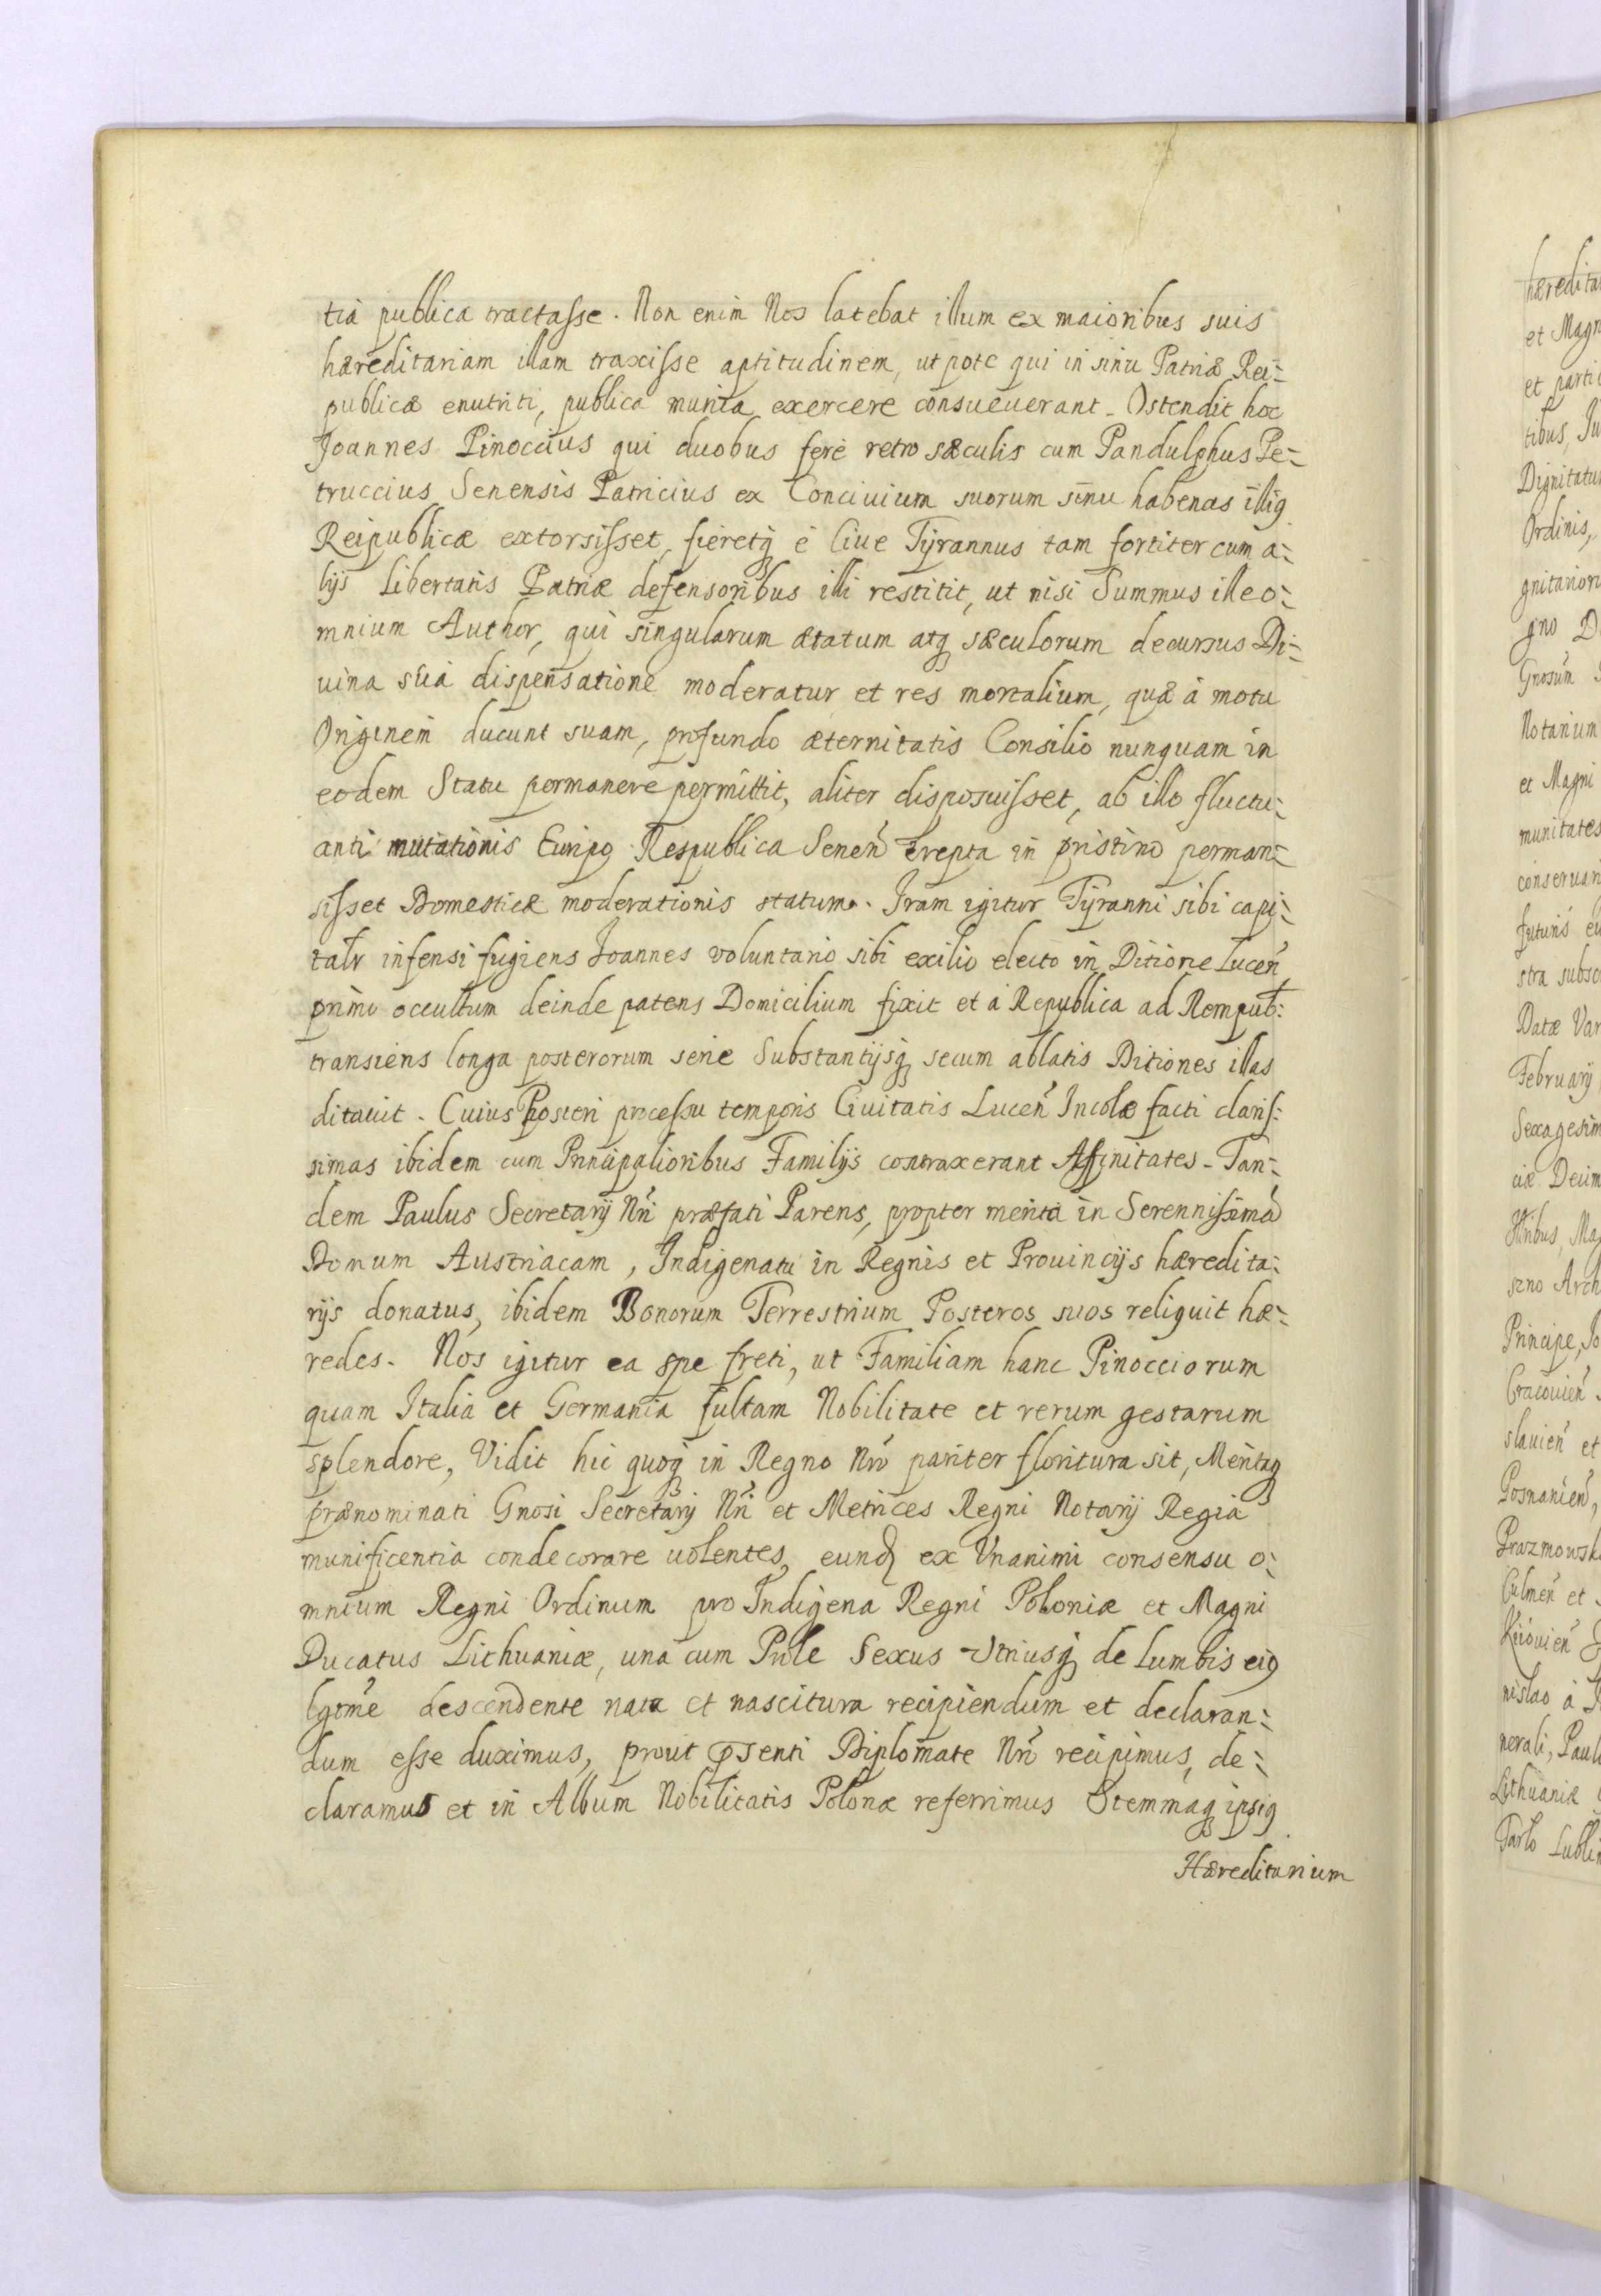 tia publica tractasse. Non enim Nos latebat illum ex maioribus suis
hæreditariam illam traxisse aptitudinem, utpote qui in sinu Patriæ Rei=
publicæ enutriti, publica munia exercere consueuerant. Ostendit hoc
Joannes Pinoccius qui duobus ferè retro sæculis cum Pandulphus Pe=
truccius Senensis Patricius ex Conciuium suorum sinu habenas illi9
Reipublicæ extorsisset, fieretq3 è Ciue Tyrannus tam fortiter cum a=
lijs Libertatis Patriæ defensoribus illi restitit, ut nisi Summus ille o=
mnium Author, qui singularum ætatum atq3 sæculorum decursus Di=
uina suâ dispensatione moderatur et res mortalium, quæ à motu
Originem ducunt suam, profundo æternitatis Consilio nunquam in
eodem Statu permanere permittit, aliter disposuisset, ab illo fluctu=
anti mutationis Euripo Respublica Senen̄ Erepta in pristino perman=
sisset Domesticæ moderationis statumo. Iram igitur Tyranni sibi capi=
talr infensi fugiens Joannes voluntario sibi exilio electo in Ditione Lucen̄
primo occultum deinde patens Domicilium fixit et à Republica ad Rempub:
transiens longa posterorum serie Substantijsq3 secum ablatis Ditiones illas
ditauit. Cuius Posteri processu temporis Ciuitatis Lucen̄ Incolæ facti claris=
simas ibidem cum Principalioribus Familijs contraxerant Affinitates. Tan=
dem Paulus Secretarij Nr̄i præfati Parens, propter merita in Serennissimā
Domum Austriacam, Indigenatu in Regnis et Prouincijs hæredita=
rijs donatus, ibidem Bonorum Terrestrium Posteros suos reliquit hæ=
redes. Nos igitur ea spe freti, ut Familiam hanc Pinocciorum
quam Italia et Germania fultam Nobilitate et rerum gestarum
splendore, Vidit hic quoq3 in Regno Nr̄o pariter floritura sit, Meritaq3
prænominati Gnosi Secretarij Nr̄i et Metrices Regni Notarij Regia
munificentia condecorare uolentes, eund ex Unanimi consensu o=
mnium Regni Ordinum pro Indigena Regni Poloniæ et Magni
Ducatus Lithuaniæ, una cum Prole Sexus Utriusq3 de Lumbis ei9
lgtme descendente nata et nascitura recipiendum et declaran=
dum esse duximus, prout p̄senti Diplomate Nr̄o recipimus, de=
claramus et in Album Nobilitatis Polonæ referrimus Stemmaq3 ipsi9
Hæreditarium
hæredita
et Magn
et parti
tibus, Ju
Dignitatu
Ordinis,
gnitarior
gno D
Gnosum
Notarium
et Magni
munitates
conseruan
futuris eu
stra subsc
Datæ Var
February
Sexagesim
ciæ Decim
Principe, Jo
Cracouien̄
slauien̄ et
Posnanien̄,
Prazmowsk
Culmen̄ et
Kiiouien̄
nislao à
nerali, Paul
Lithuaniæ
Tarlo Lubli